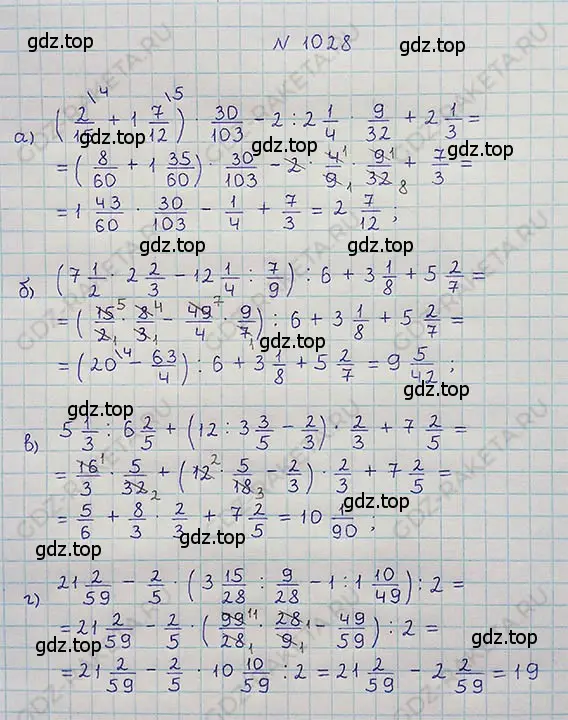 gdz.top
gdz.top
№ 1028
а) (2/15 \4 + 1 7/12 \5) · 30/103 - 2 : 2 1/4 · 9/32 + 2 1/3 =
gdz.top
= (8/60 + 1 35/60) · 30/103 - 2 · 4/9 · 9/32 + 7/3 =
gdz.top
= 1 43/60 · 30/103 - 1/4 + 7/3 = 2 7/12 ;
gdz.top
б) (7 1/2 · 2 2/3 - 12 1/4 : 7/9) : 6 + 3 1/8 + 5 2/7 =
= (15/2 · 8/3 - 49/4 · 9/7) : 6 + 3 1/8 + 5 2/7 =
gdz.top
= (20 \4 - 63/4) : 6 + 3 1/8 + 5 2/7 = 9 5/42 ;
gdz.top
gdz.top
в) 5 1/3 : 6 2/5 + (12 : 3 3/5 - 2/3) · 2/3 + 7 2/5 =
= 16/3 · 5/32 + (12 · 5/18 - 2/3) · 2/3 + 7 2/5 =
gdz.top
= 5/6 + 8/3 · 2/3 + 7 2/5 = 10 1/90 ;
gdz.top
gdz.top
г) 21 2/59 - 2/5 · (3 15/28 : 9/28 - 1 : 1 10/49) : 2 =
= 21 2/59 - 2/5 · (99/28 · 28/9 - 49/59) : 2 =
gdz.top
gdz.top
= 21 2/59 - 2/5 · 10 10/59 : 2 = 21 2/59 - 2 2/59 = 19
gdz.top
GDZ-RAKETA.RU